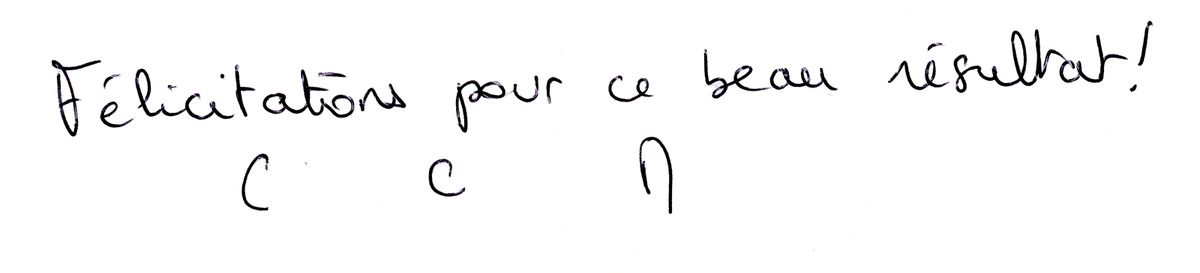 Félicitations pour ce beau résultat!